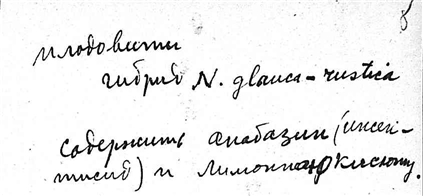 8
плодовиты
гибрид N. glauca-rustica
содержить анабазин (инсек-
тисид) и лимонную кислоту.